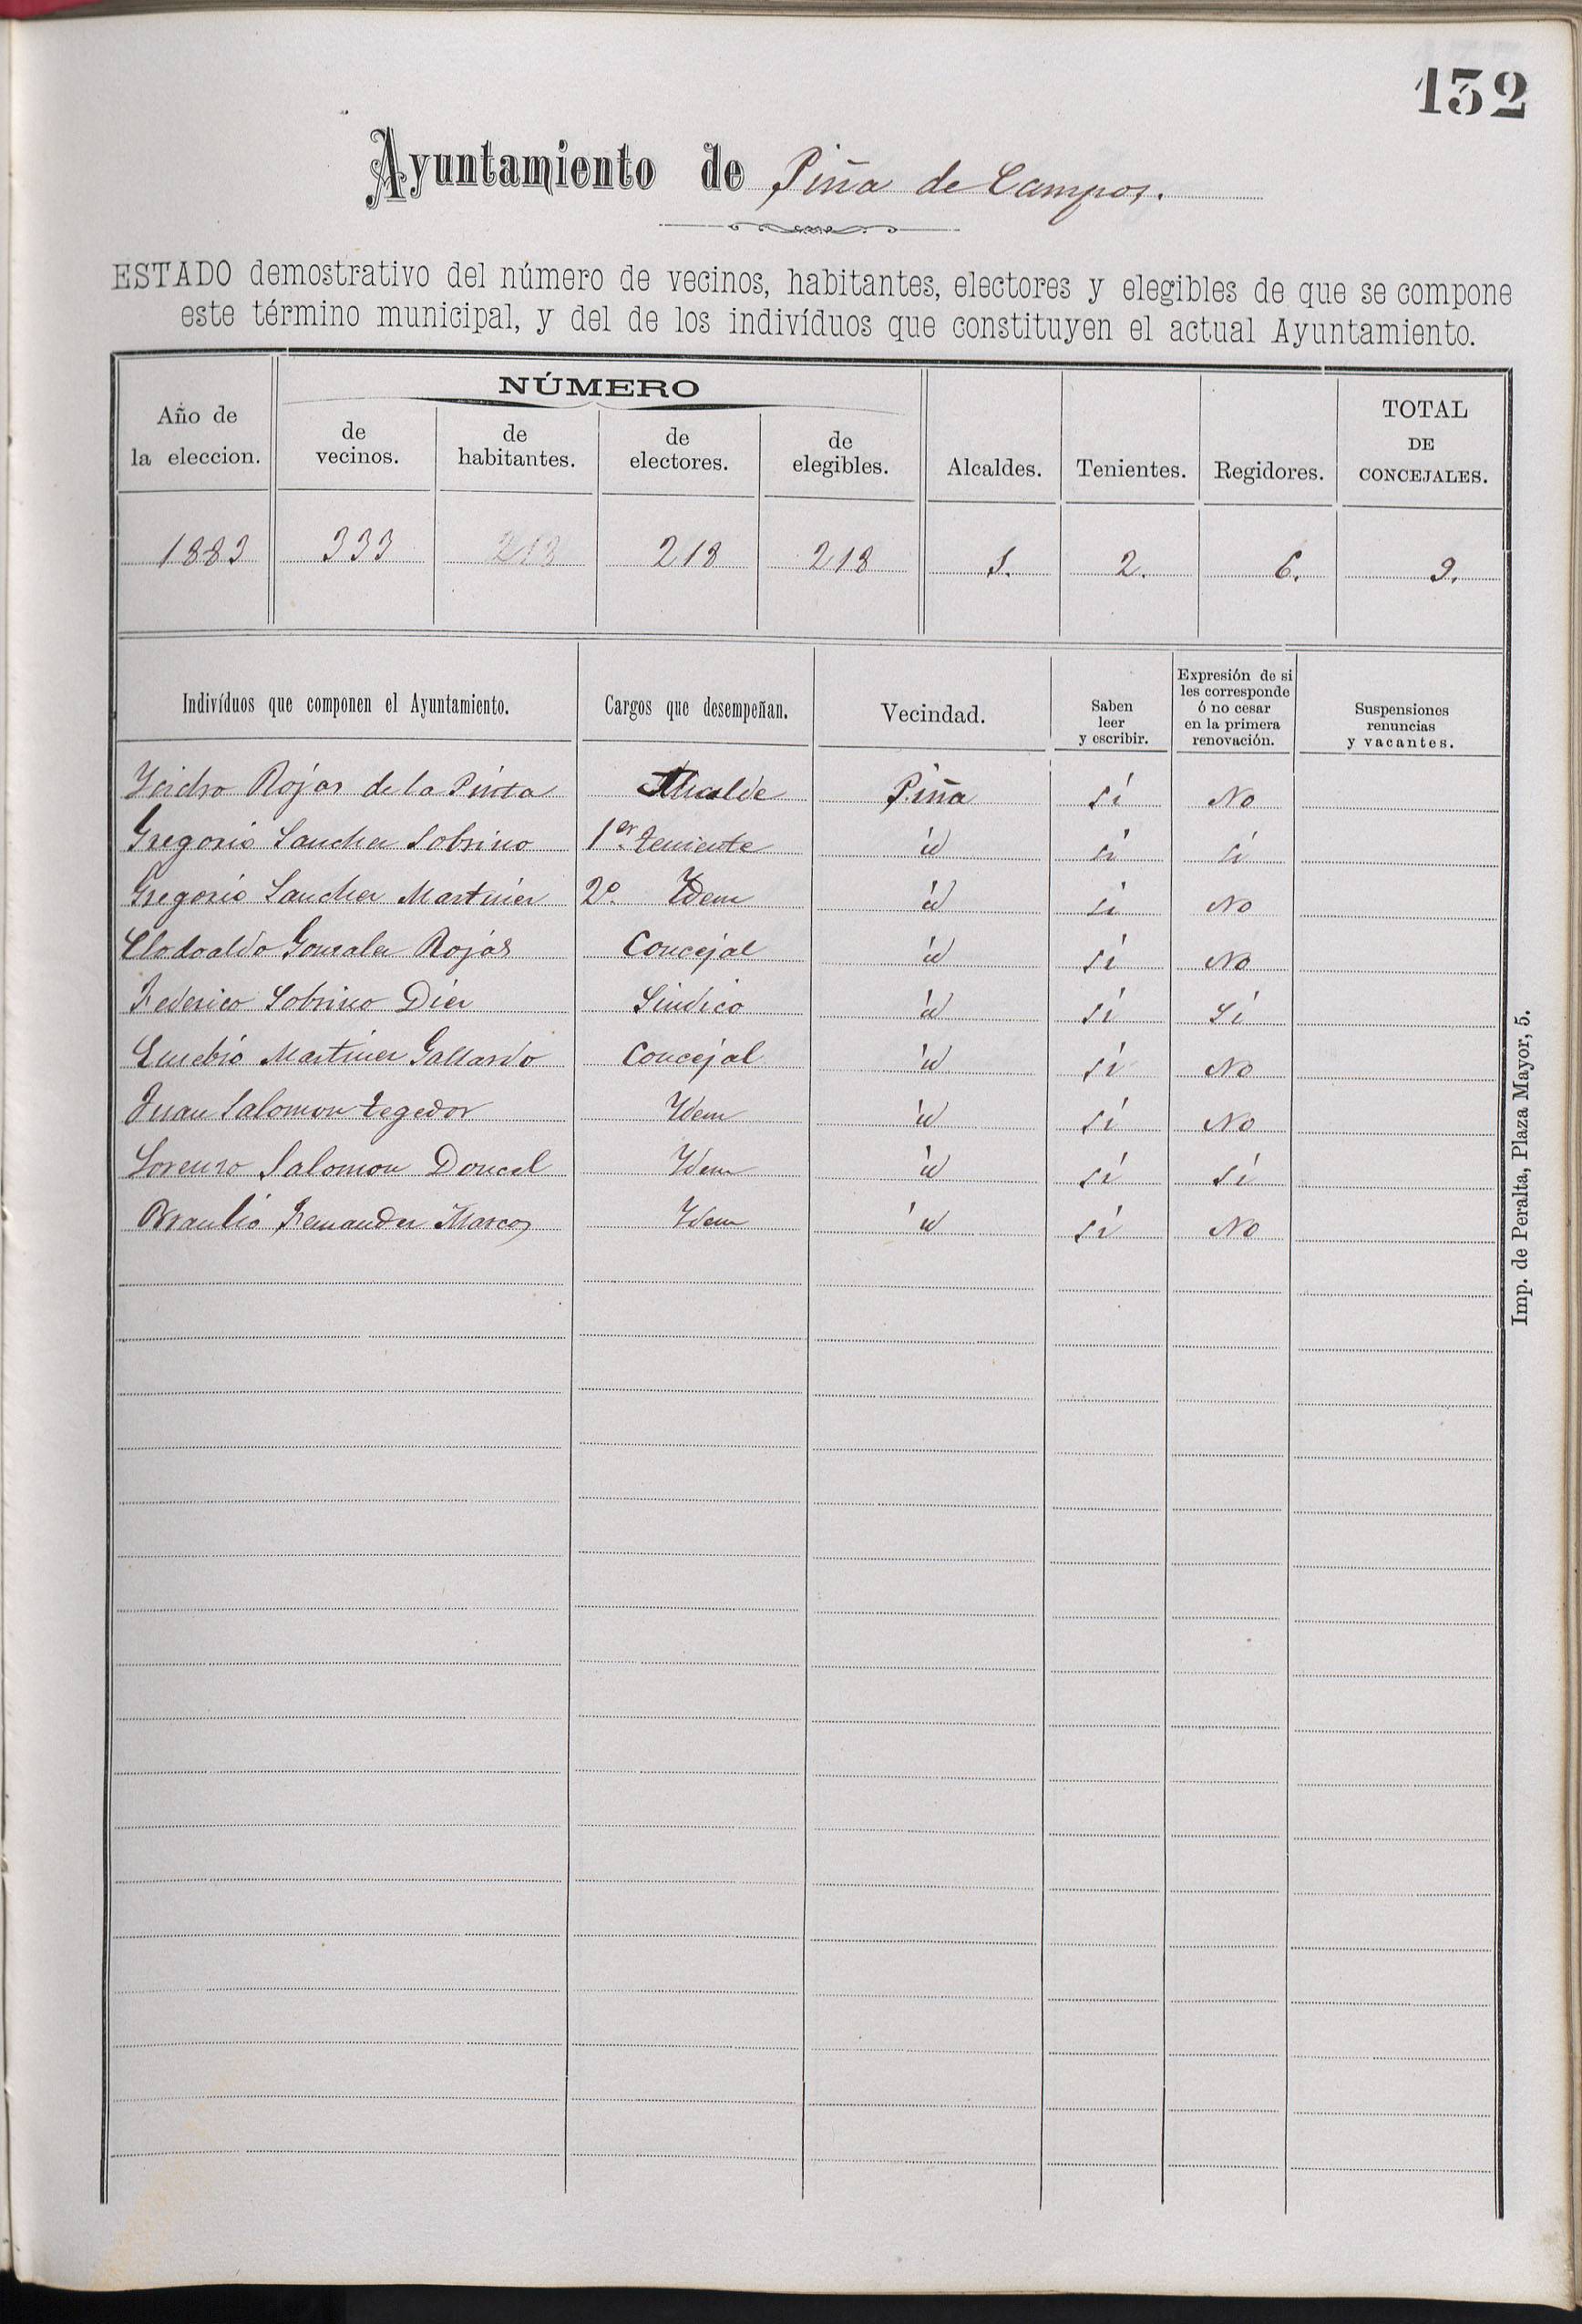 132
Ayuntamiento de Piña de Campos.
ESTADO demostrativo del número de vecinos, habitantes, electores y elegibles de que se compone
este término municipal, y del de los indivíduos que constituyen el actual Ayuntamiento.
Año de la eleccion. NÚMERO de vecinos. de habitantes. de electores. de elegibles. Alcaldes. Tenientes. Regidores. TOTAL DE CONCEJALES.
1883 333 218 218 218 1. 2. 6. 9.
Indivíduos que componen el Ayuntamiento. Cargos que desempeñan. Vecindad. Saben leer y escribir. Expresión de si les corresponde ó no cesar en la primera renovación. Suspensiones renuncias y vacantes.
Ysidro Rojas de la Pinta Alcalde Piña sí No
Gregorio Sanchez Sobrino 1er. teniente id si si
Gregorio Sanchez Martinez 2º. Ydem id si No
Clodoaldo Gonzalez Rojas Concejal id sí No
Federico Sobrino Diez Sindico id sí Sí
Eusebio Martinez Gallardo Concejal id sí No
Juan Salomon tegedor Ydem id sí No
Lorenzo Salomon Doncel Ydem id sí sí
Braulio Fernandez Marcos Ydem id sí No
Imp. de Peralta, Plaza Mayor, 5.